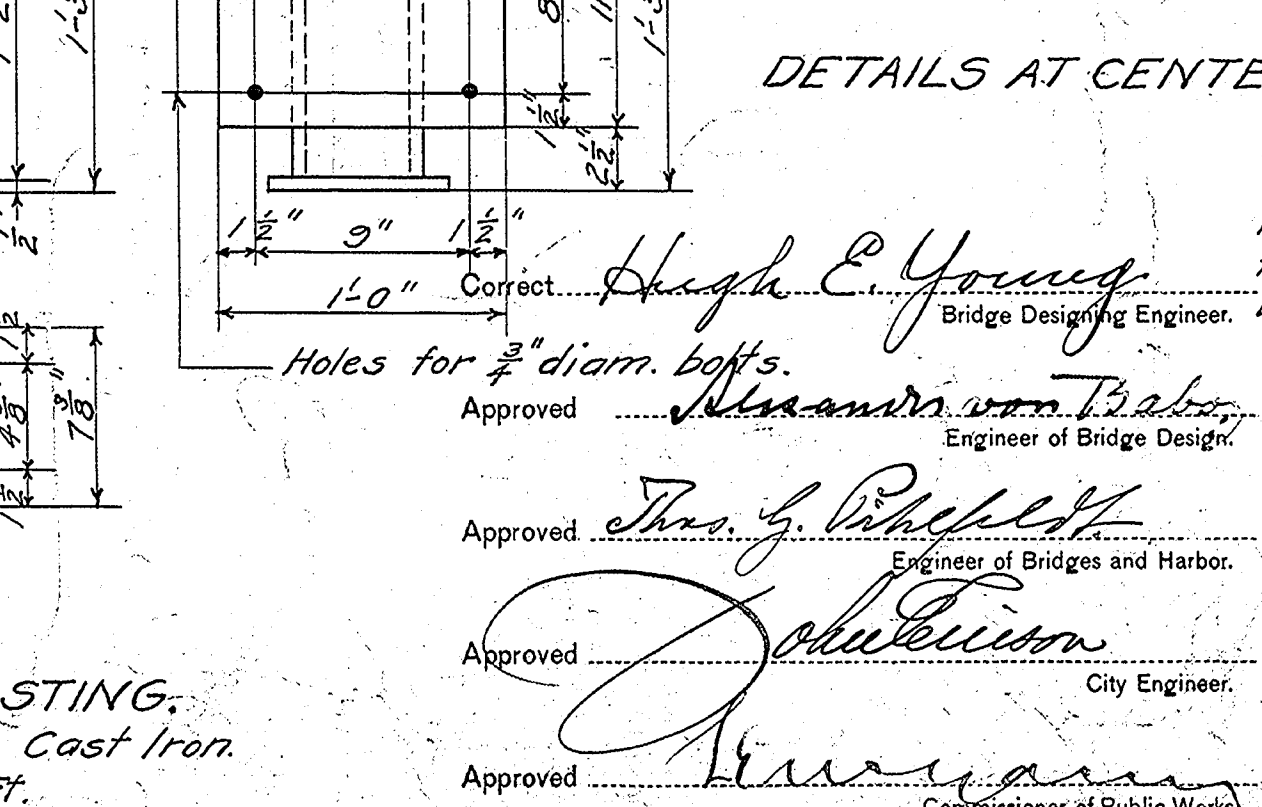 DETAILS AT CENTE
1½" 9" 1½"
1'-0"
2½"
1½"
Holes for ¾" diam. bolts.
7⅜"
4⅜
Correct Hugh E. Young
Bridge Designing Engineer.
Approved Alexander von Babo,
Engineer of Bridge Design.
Approved Thos. G. Pihlfeldt.
Engineer of Bridges and Harbor.
Approved John Ericson
City Engineer.
Approved
Commissioner of Public Works
STING.
Cast Iron.